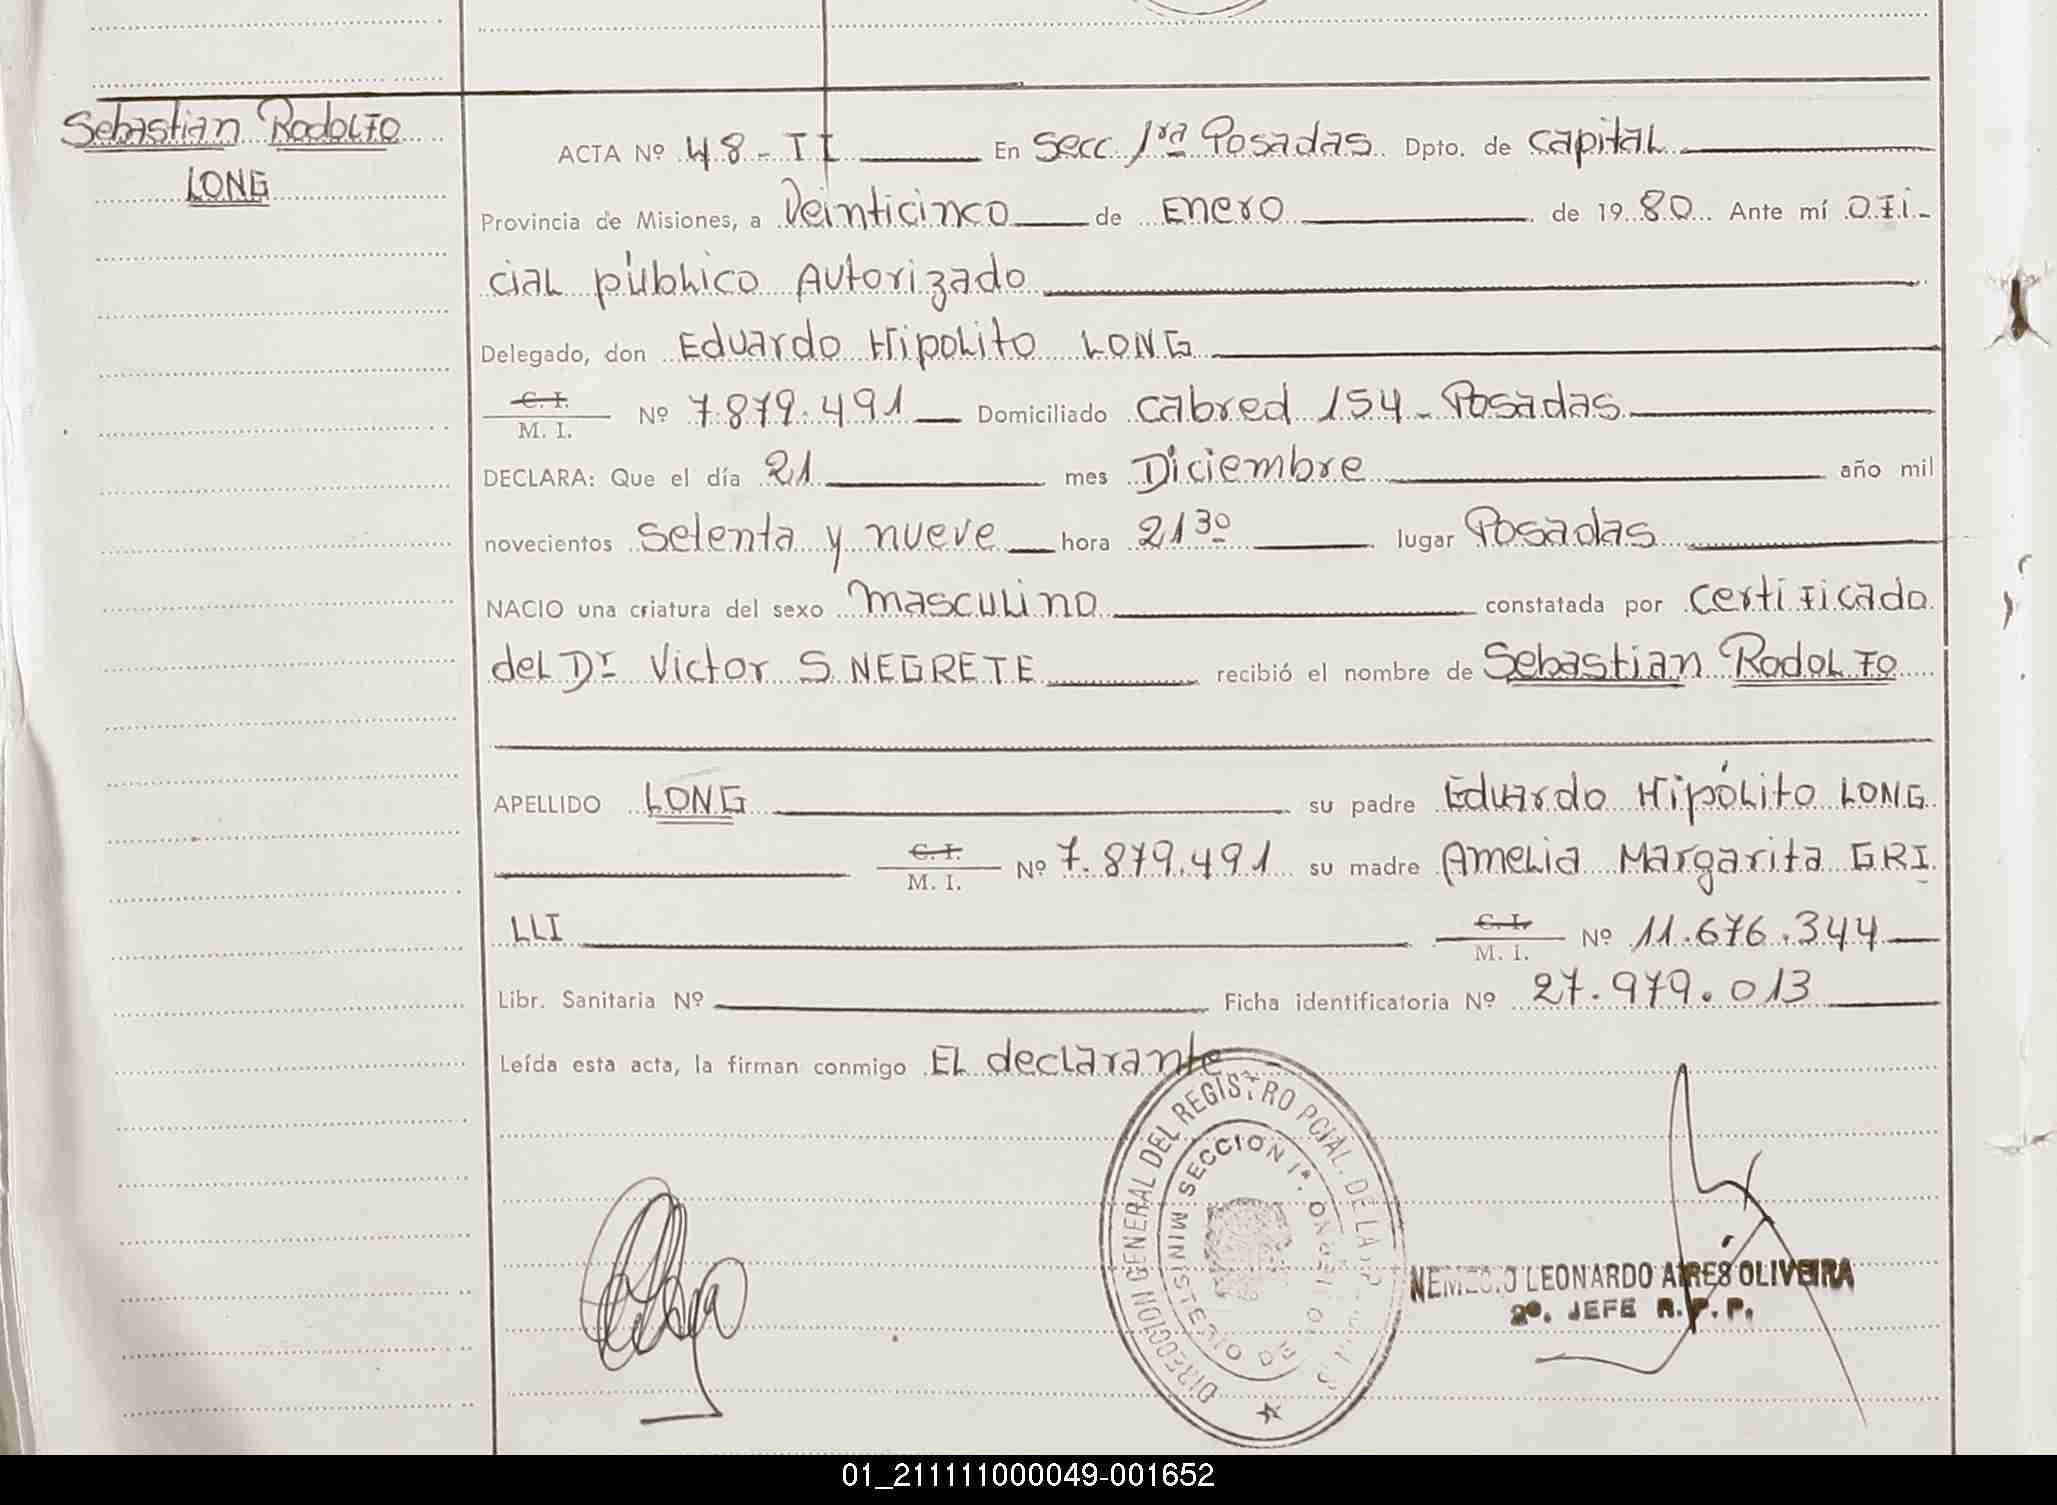 Sebastian Rodolfo
LONG
ACTA Nº 48-II En Secc 1ra Posadas Dpto. de Capital
Provincia de Misiones, a Veinticinco de Enero de 1980 Ante mí Ofi-
cial público Autorizado
Delegado, don Eduardo Hipolito LONG
C. I.
M. I. Nº 7.879.491 Domiciliado Cabred 154 - Posadas
DECLARA: Que el día 21 mes Diciembre año mil
novecientos setenta y nueve hora 21 30 lugar Posadas
NACIO una criatura del sexo Masculino constatada por certificado
del Dr Victor S NEGRETE recibió el nombre de Sebastian Rodolfo
APELLIDO LONG su padre Eduardo Hipólito LONG
C. I.
M. I. Nº 7.879.491 su madre Amelia Margarita GRI
LLI C. I.
M. I. Nº 11.676.344
Libr. Sanitaria Nº Ficha identificatoria Nº 27.979.013
Leída esta acta, la firman conmigo El declarante
DIRECCION GENERAL DEL REGISTRO PCIAL. DE LA
SECCION 1ª.
MINISTERIO DE
LEONARDO AIRES OLIVEIRA
2º. JEFE R. P. P.
01_211111000049-001652